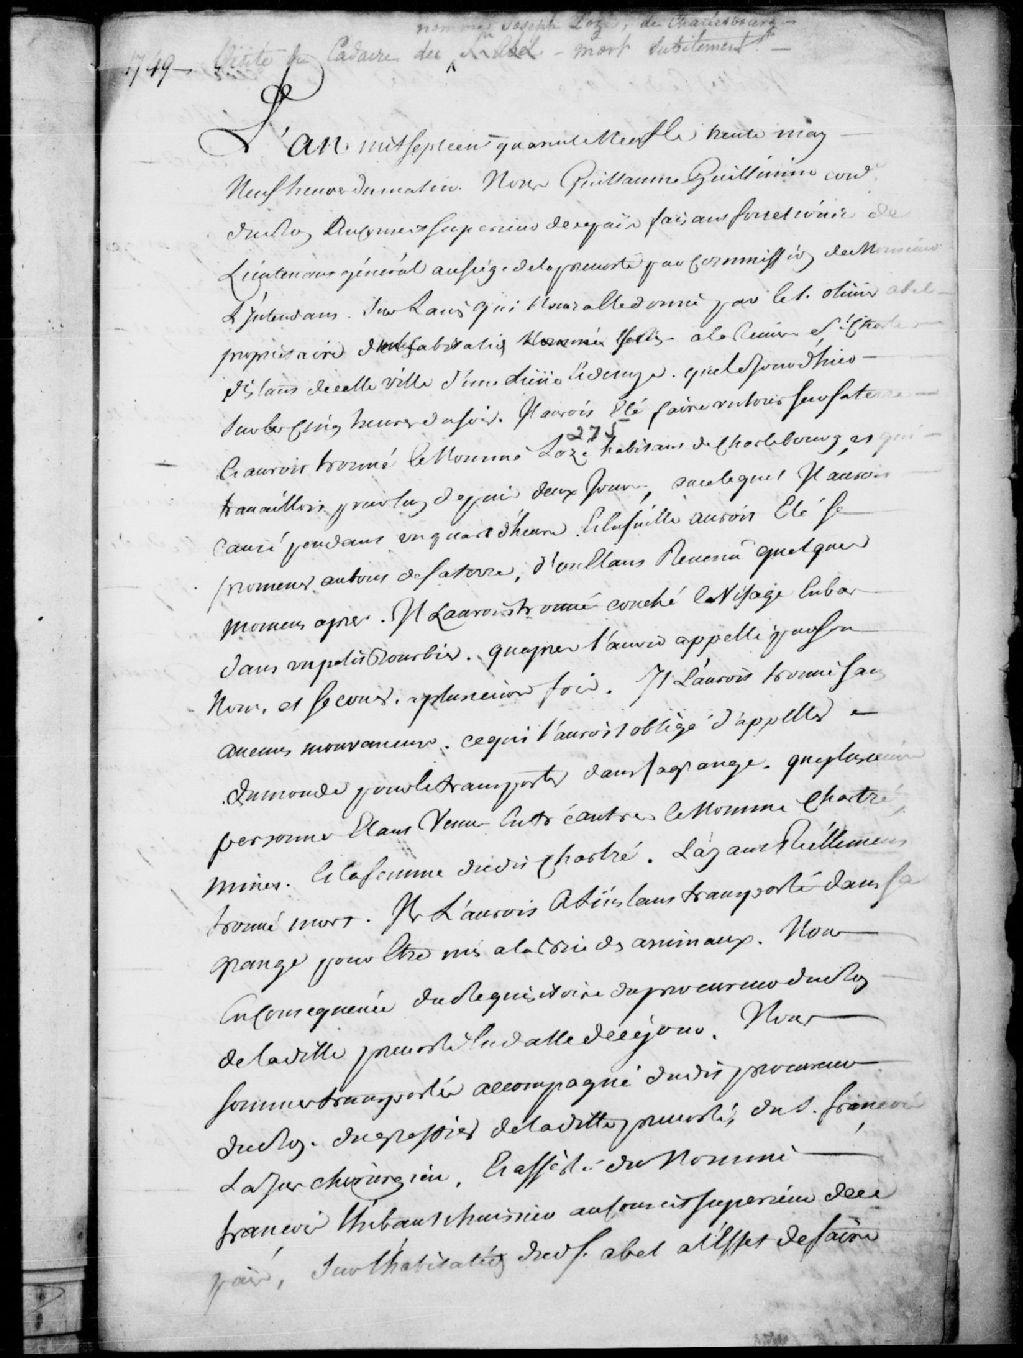 nommé Joseph Lozé, de Charlesbourg
1749 — Visite du Cadavre du Abel - mort subitement —
L'an mil sept cent quarente Neuf le trente may —
Neuf heures du matin. Nous Guillaume Guillimin cons.er
du Roy Au Conseil superieur de ce païs faisant fonctions de
Lieutenant général au siége de la prevosté par Commission de Monsieur
L'Intendant. Sur L'avis qui Nous a été donné par le S. olivier abel —
propriaire d'une habitation Nommée a la Riviere St Charles —
distant de cette ville d'une demie Lieue. que le Jour d'hier —
sur les Cinq heures du soir. Il auroit été faire un tour sur sa terre —
275
Et auroit trouvé le Nommé Lozé habitant de Charlebourg et qui —
travailloit pour luy depuis deux Jours, avec lequel Il auroit
causé pendant un quart d'heure. Et la suitte auroit Eté se
promener autour de sa terre, d'ou Etant Revenu quelques
momens apres. Il L'auroit trouvé couché le Visage Enbas —
dans un petit Bourbier. qu'apres l'avoir appellé par son
Nom, et secoué. plusieurs fois. Il L'auroit trouvé sans
aucuns mouvemens. ce qui l'auroit obligé d'appeller —
du monde pour le transporter dans sa grange. que plusieurs
personnes Etant Venus Entre autres le Nommé Chartré,
mines. Et la femme dudit Chartré. L'ayant Réellement
trouvé mort. Ils L'auroit A L'instant transporté dans sa
grange pour Etre mis a labrie des animaux. Nous
En Consequence du Requisitoire du procureur du Roy
de la ditte prevosté En datte de ce jour. Nous
sommes transportés accompagné dudit procureur
du Roy. du greffier de la ditte prevosté, du S. françois
Lajus chirurgien, Et assisté du Nommé
françois Thibault huissier au Conseil superieur de ce
païs, sur l'habitation dud. S. abel a l'Effet de faire